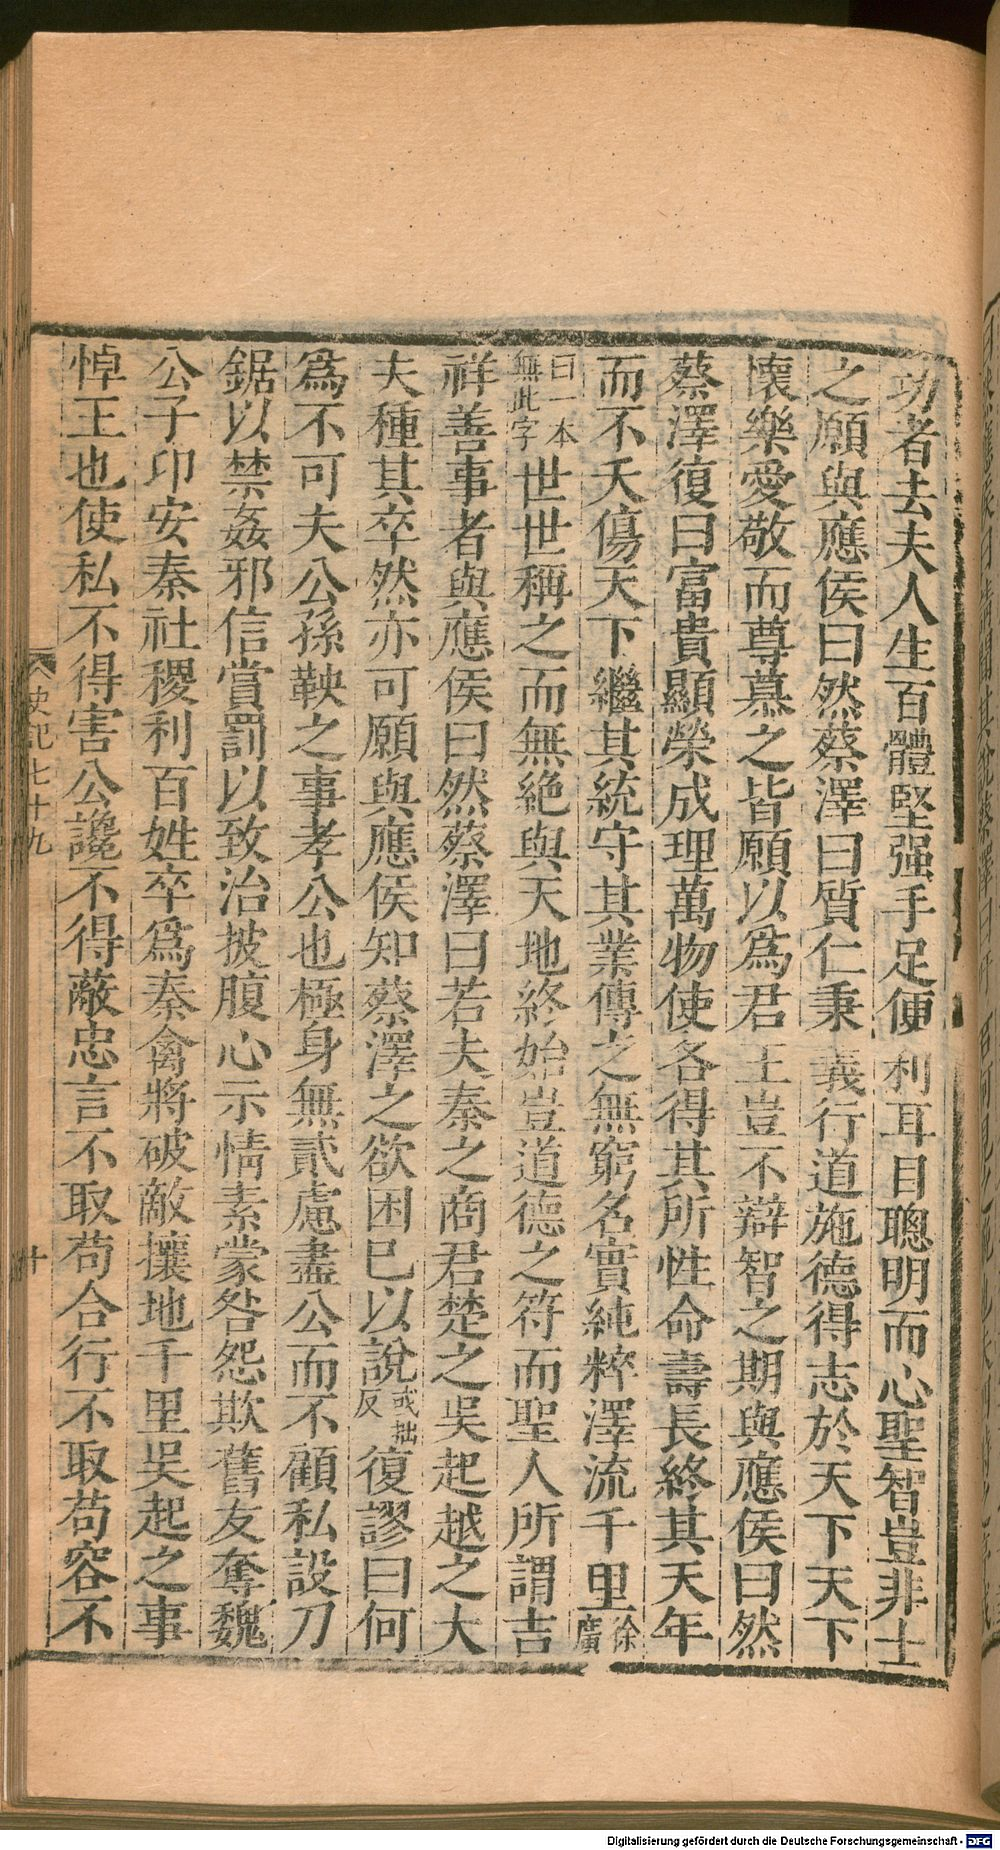 功者去夫人生百體堅强手足便利耳目聰明而心聖智豈非士
之願與應侯曰然蔡澤曰質仁秉義行道施德得志於天下天下
懷樂愛敬而尊慕之皆願以爲君王豈不辯智之期與應侯曰然
蔡澤復曰富貴顯榮成理萬物使各得其所性命壽長終其天年
而不夭傷天下繼其統守其業傳之無窮名實純粹澤流千里徐廣
曰一本無此字世世稱之而無絶與天地終始豈道德之符而聖人所謂吉
祥善事者與應侯曰然蔡澤曰若夫秦之商君楚之吳起越之大
夫種其卒然亦可願與應侯知蔡澤之欲困巳以說式拙反復謬曰何
爲不可夫公孫鞅之事孝公也極身無貳慮盡公而不顧私設刀
鋸以禁姦邪信賞罰以致治披腹心示情素蒙咎怨欺舊友奪魏
公子卬安秦社稷利百姓卒爲秦禽將破敵攘地千里吳起之事
悼王也使私不得害公讒不得蔽忠言不取苟合行不取苟容不
史記七十九
十
Digitalisierung gefördert durch die Deutsche Forschungsgemeinschaft - DFG